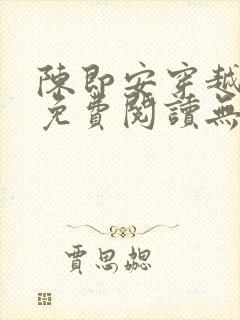 陳即安穿越
免費閱讀無
賈思勰